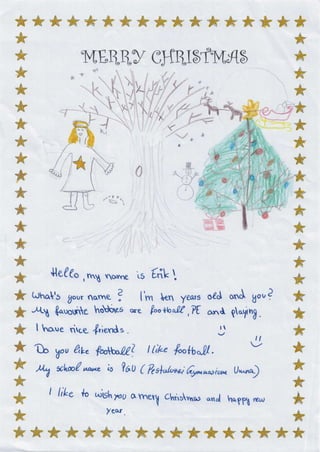 MERRY CHRISTMAS
Hello, my name is Erik!
What's your name? I'm ten years old and you?
My favourite hobbies are football, PE and playing.
I have nice friends.
Do you like football? I like football.
My school name is PGU (Pestalozzi Gymnasium Unna)
I like to wish you a merry Christmas and happy new
year.